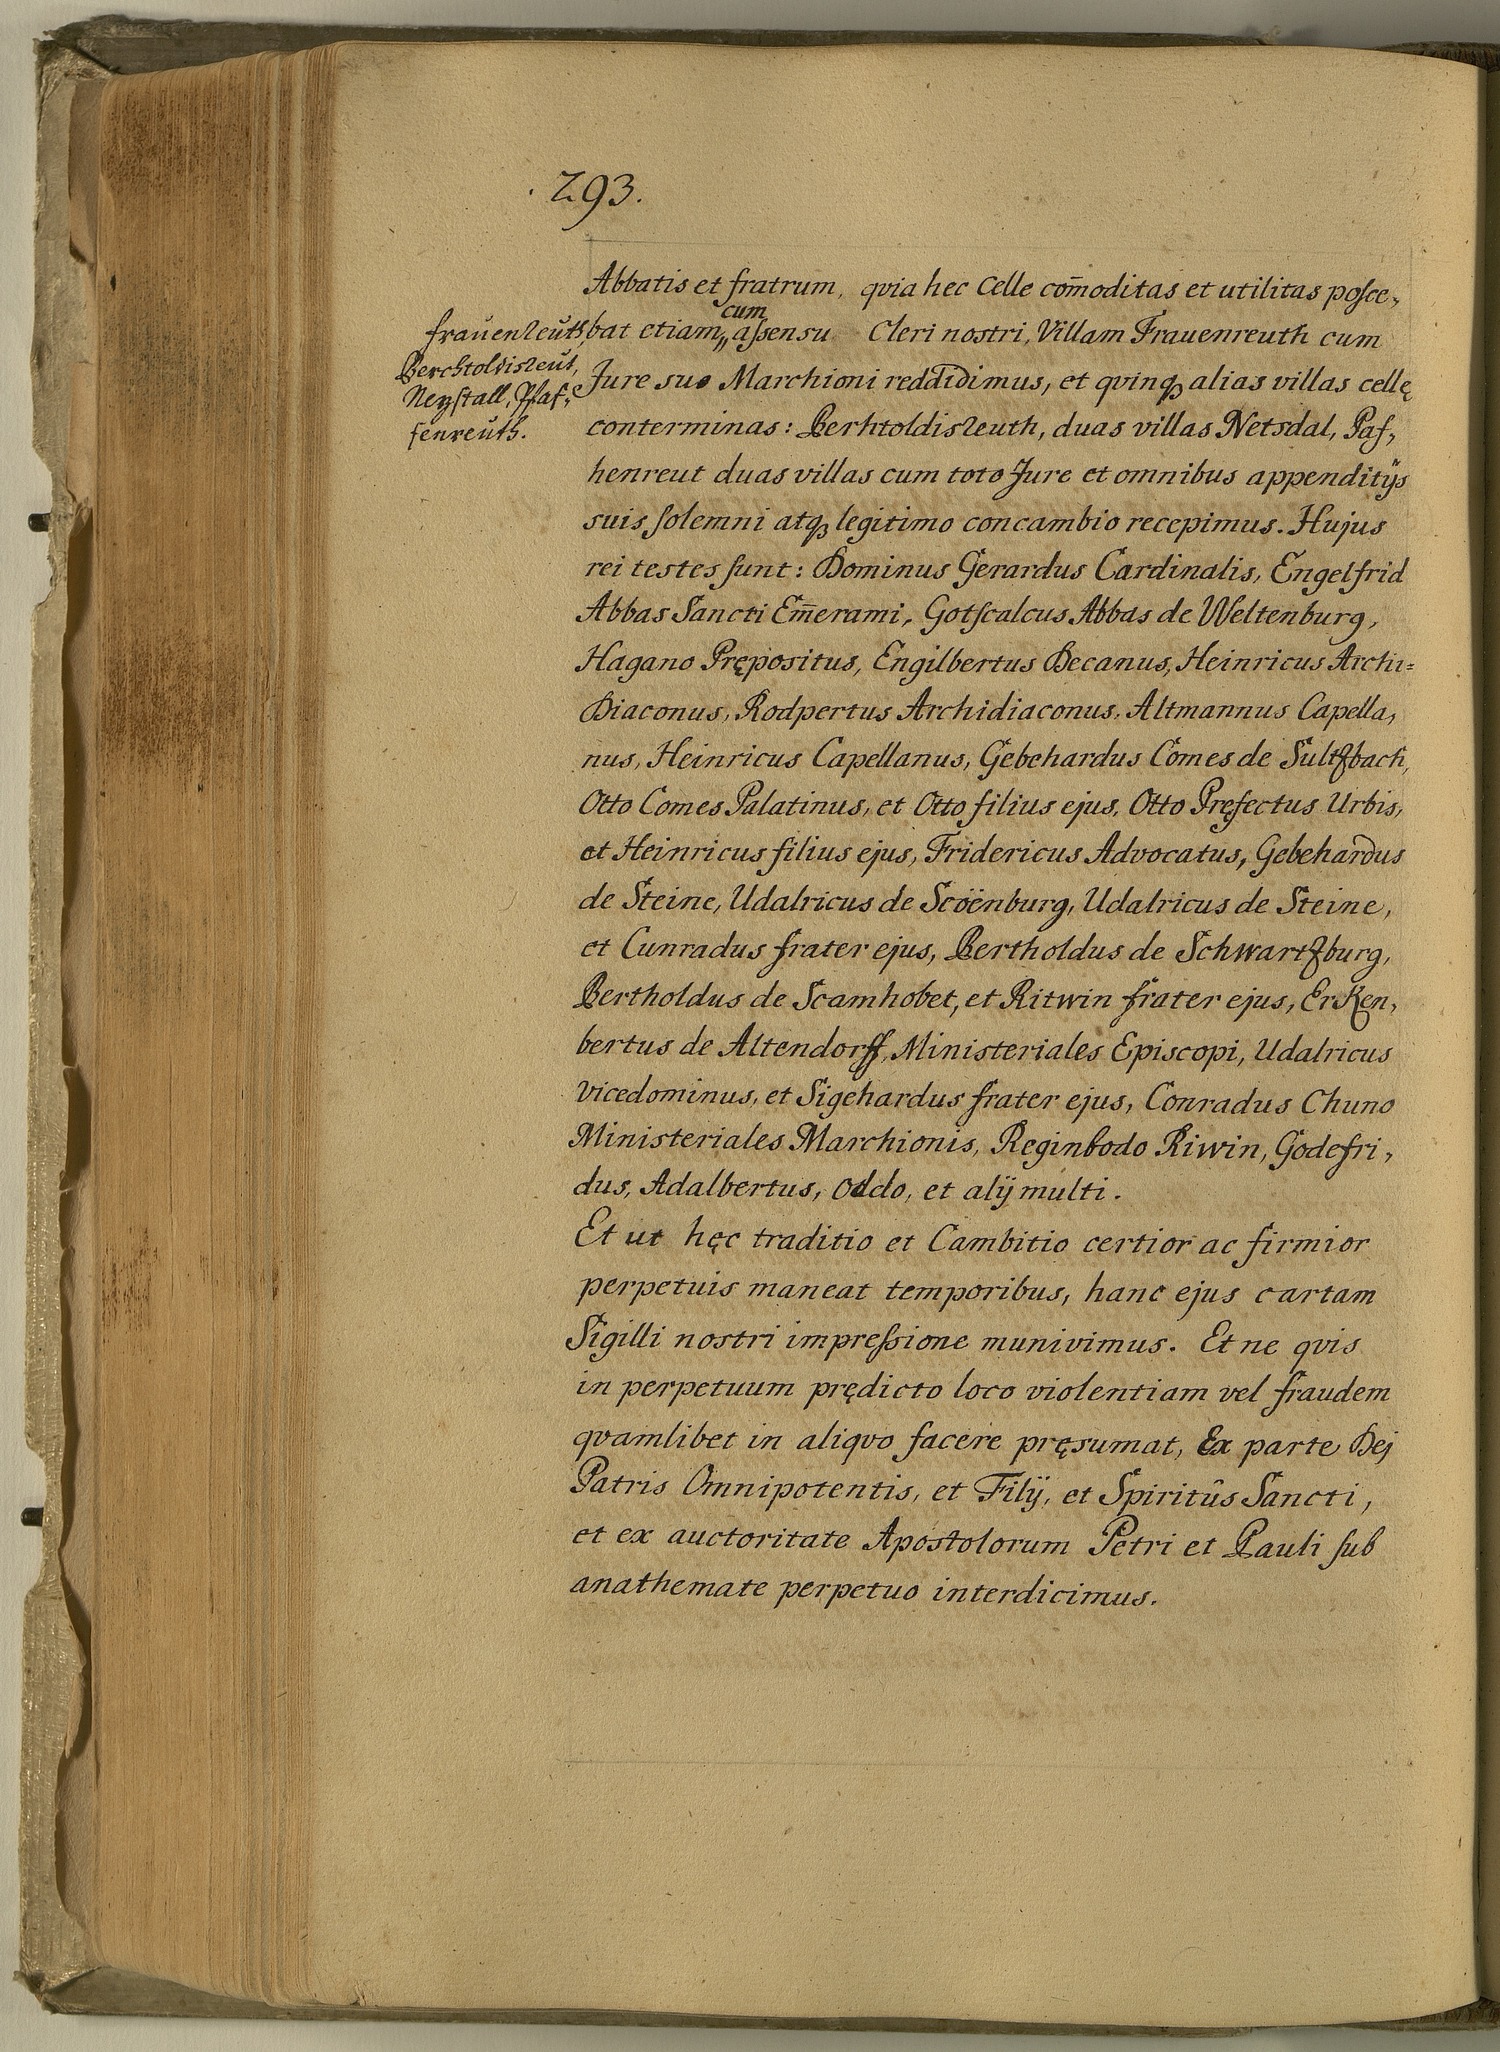 293.
Abbatis et fratrum, qvia hec Celle com̄oditas et utilitas poſce,
cum
bat etiam,, aſsensu Cleri nostri, Villam Frauenreuth cum
Jure suo Marchioni reddidimus, et qvinqꝫ alias villas cellę
conterminas: Berhtoldisreuth, duas villas Netsdal, Paf,
henreut duas villas cum toto Jure et omnibus appenditÿs
suis ſolemni atqꝫ legitimo concambio recepimus. Hujus
rei testes ſunt: Dominus Gerardus Cardinalis, Engelfrid
Abbas Sancti Em̄erami, Gotſcalcus Abbas de Weltenburg,
Hagano Prępositus, Engilbertus Decanus, Heinricus Archi=
Diaconus, Rodpertus Archidiaconus, Altmannus Capella,
nus, Heinricus Capellanus, Gebehardus Comes de Sultzbach,
Otto Comes Palatinus, et Otto filius ejus, Otto Pręfectus Urbis,
et Heinricus filius ejus, Fridericus Advocatus, Gebehardus
de Steine, Udalricus de Scöenburg, Udalricus de Steine,
et Cunradus frater ejus, Bertholdus de Schwartzburg,
Bertholdus de Scamhobet, et Ritwin frater ejus, ErKen,
bertus de Altendorff, Ministeriales Episcopi, Udalricus
vicedominus, et Sigehardus frater ejus, Conradus Chuno
Ministeriales Marchionis, Reginbodo Riwin, Godefri,
dus, Adalbertus, Oddo, et alÿ multi.
Et ut hęc traditio et Cambitio certior ac firmior
perpetuis maneat temporibus, hanc ejus cartam
Sigilli nostri impreſsione munivimus. Et ne qvis
in perpetuum prędicto loco violentiam vel fraudem
qvamlibet in aliqvo facere pręsumat, Ex parte Dej
Patris Omnipotentis, et Filÿ, et Spiritûs Sancti,
et ex auctoritate Apostolorum Petri et Pauli ſub
anathemate perpetuo interdicimus.
Frauenreuth,
Berchtoldisreut,
Neystall, Pfaf,
fenreuth.